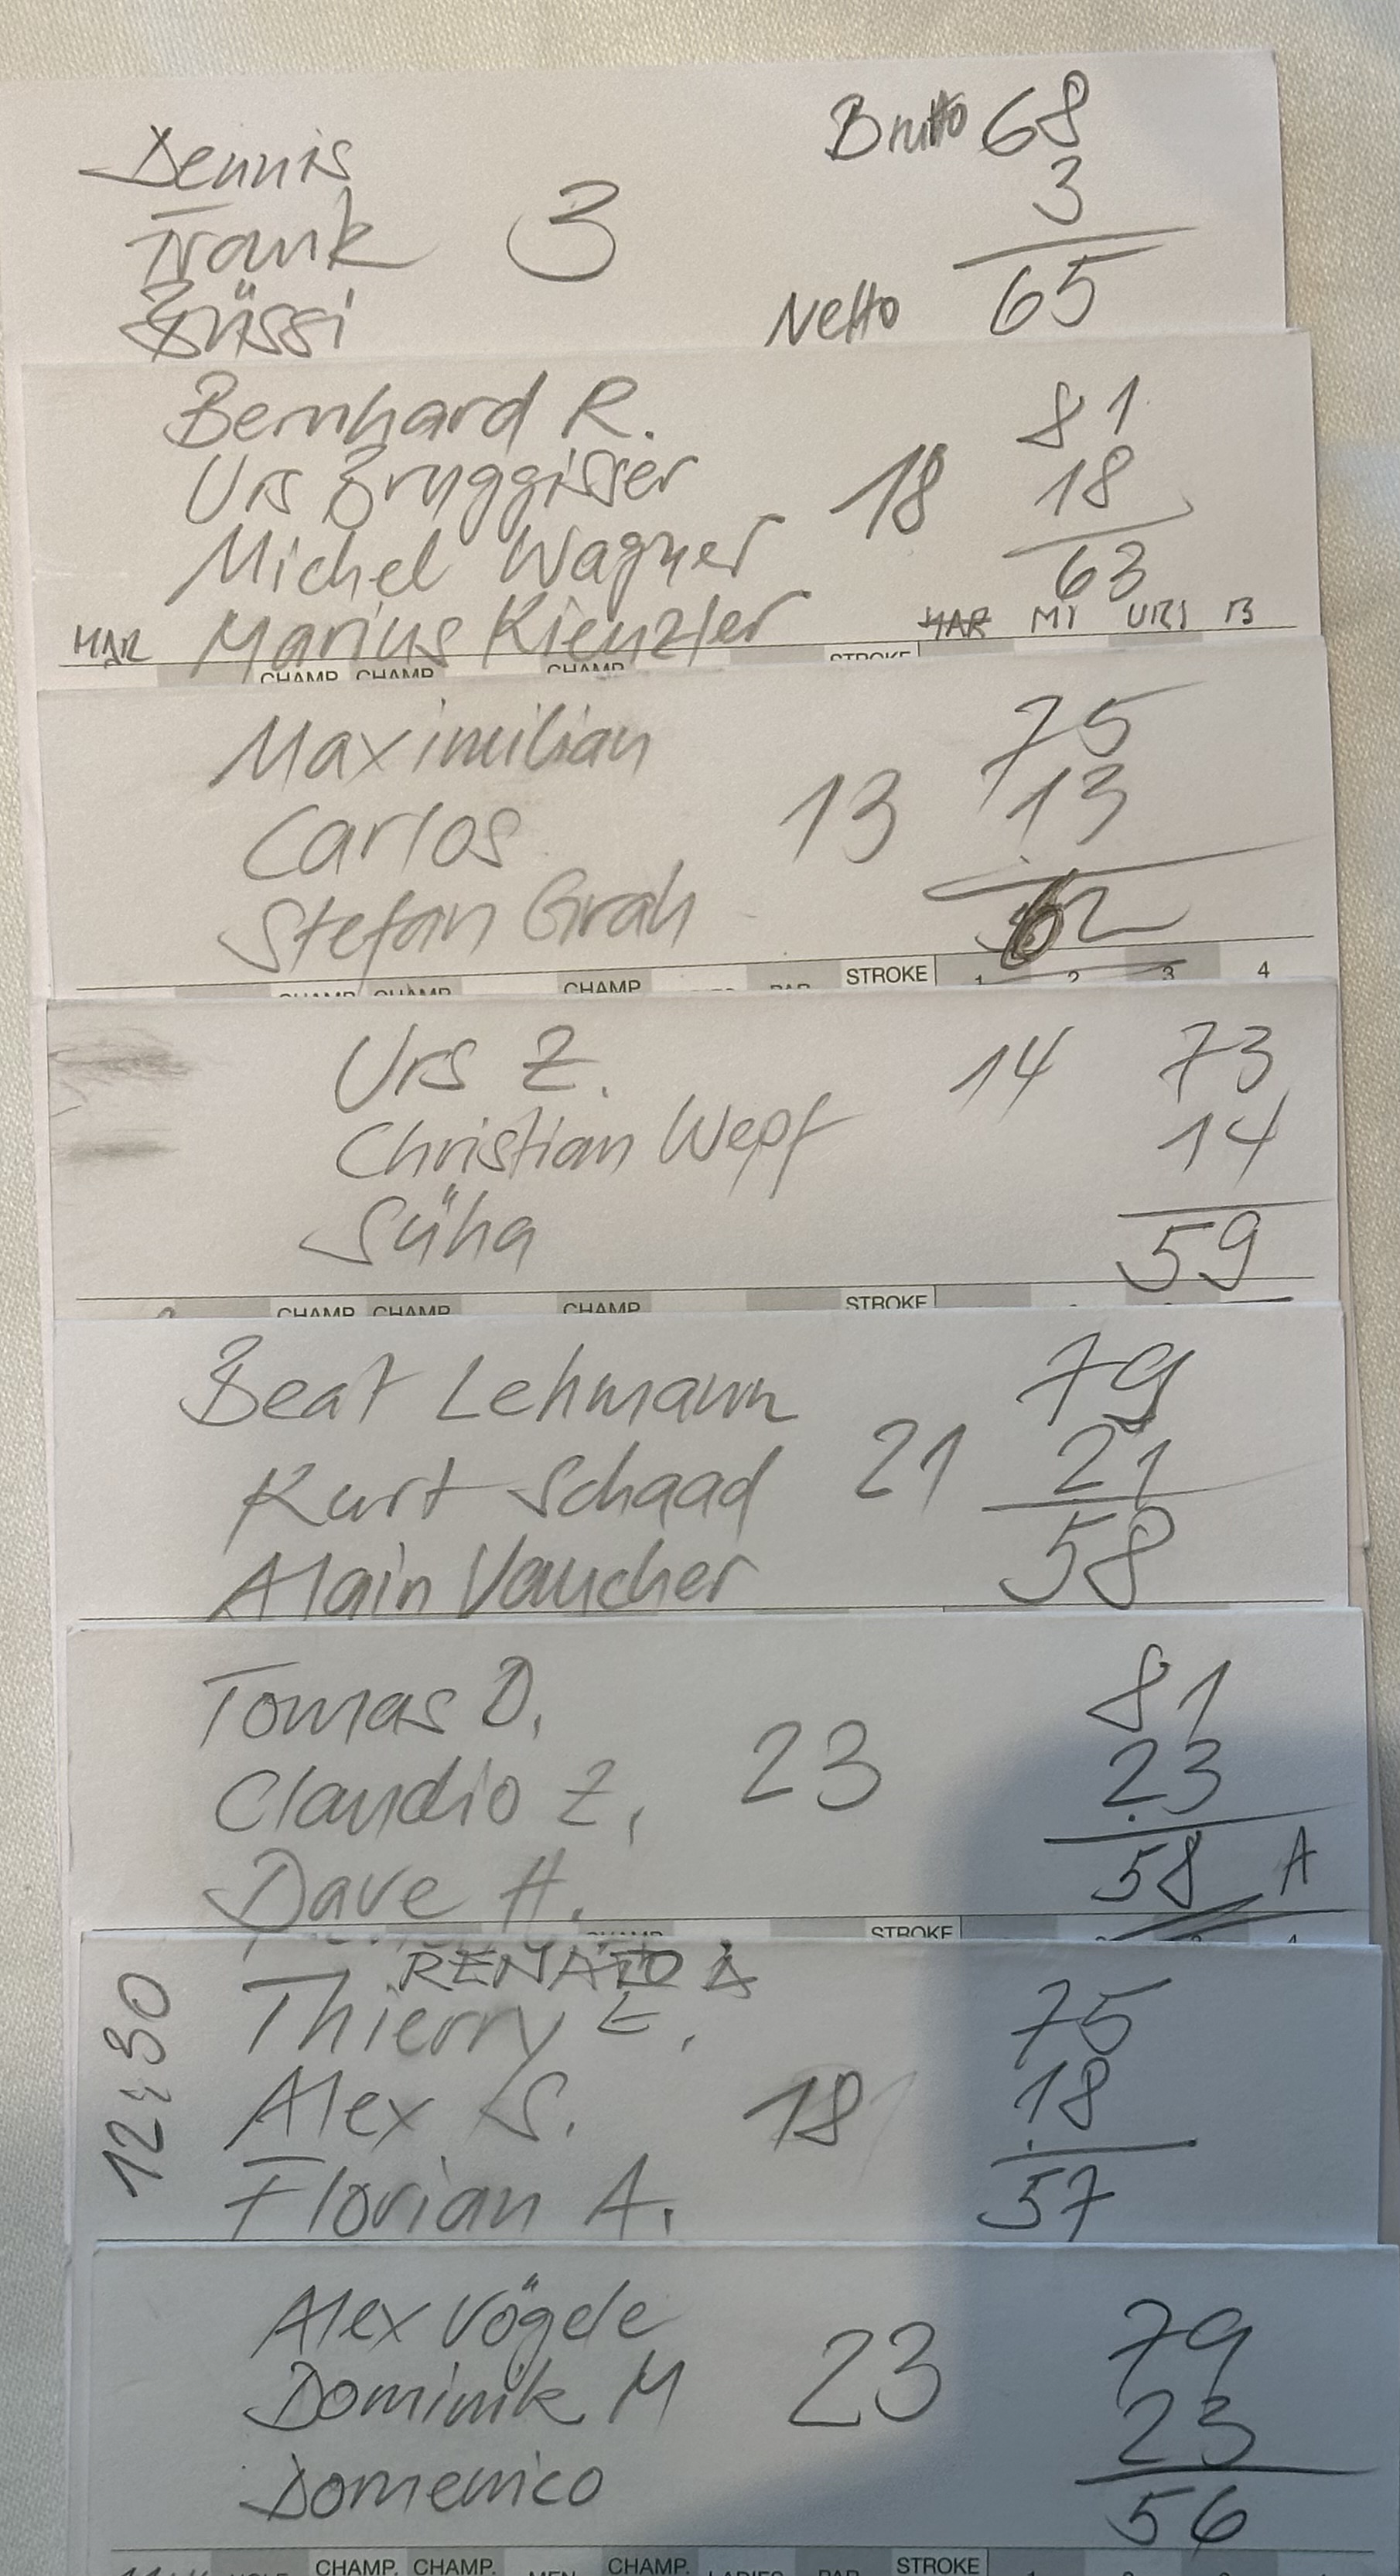 Dennis Brutto 68
Frank 3 3
Brüssi Netto 65
Bernhard R. 81
Urs Bruggisser 18 18
Michel Wagner 63
MAR Marius Kienzler MAR MI URS B
CHAMP. CHAMP. CHAMP. STROKE
Maximilian 75
Carlos 13 13
Stefan Grah 62
CHAMP. CHAMP. CHAMP. PAR STROKE 1 2 3 4
Urs Z. 14 73
Christian Wepf 14
Süha 59
CHAMP. CHAMP. CHAMP. STROKE
Beat Lehmann 79
Kurt Schaad 21 21
Alain Vaucher 58
Tomas D. 81
Claudio Z. 23 23
Dave H. 58 A
STROKE 4
RENATO A
12:30 Thierry E. 75
Alex S. 18 18
Florian A. 57
Alex Vögele 79
Dominik M 23 23
Domenico 56
HOLE CHAMP. CHAMP. MEN CHAMP. LADIES PAR STROKE 1 2 3